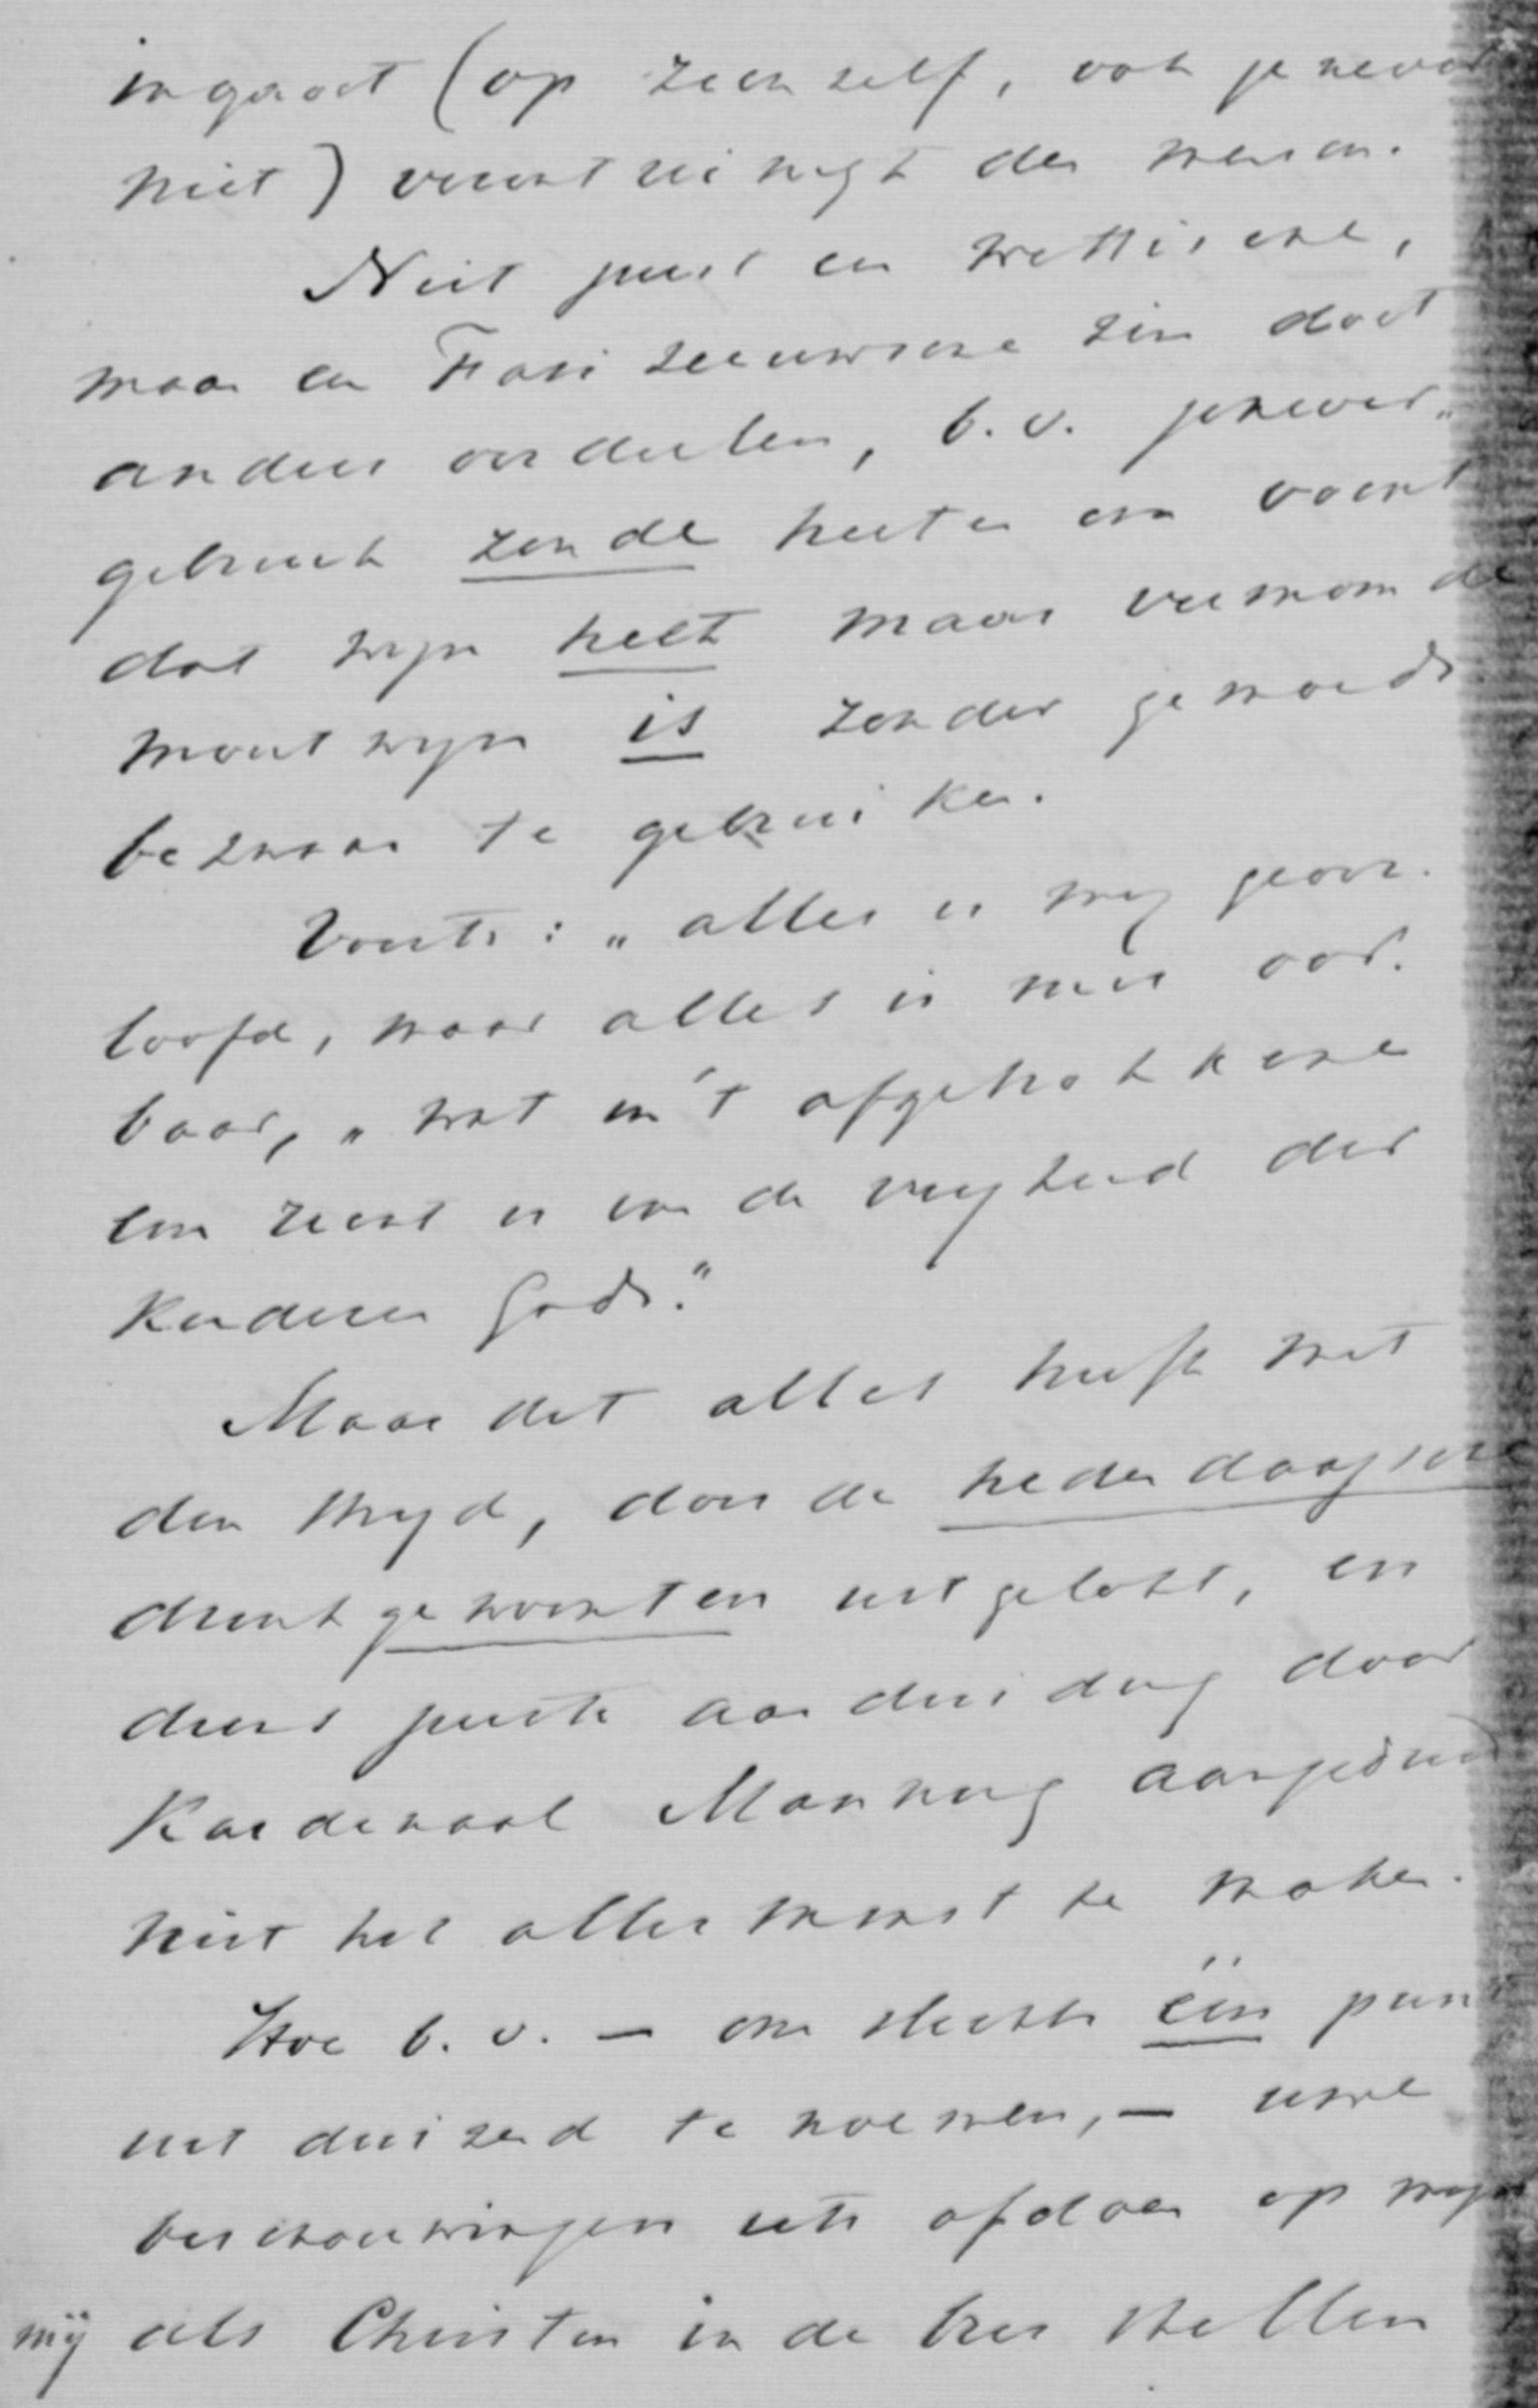 ingaat (op zich zelf, ook jenever
niet) verontreinigt den mensch.
Niet juist en wettische,
maar en Farizeeuwsche zin doet
anders oordeelen, b.v. jenever„
gebruik zonde heeten en vocht
dat wijn heet maar vermomde
moutwijn is zonder gemoeds
bezwaar te gebruiken.
Voorts: „alles is mij geoor„
loofd, maar alles is niet oor„
baar," wat in 't afgetrokkene
een recht is van de vrijheid der
kinderen Gods."
Maar dit alles heeft met
den strijd, door de hedendaagsche
drinkgewoonten uitgelokt, en
diens juiste aanduiding door
Kardinaal Manning aangeduid
niet het allerminst te maken.
Hoe b.v. — om slechts één punt
uit duizend te noemen, — uwe
beschouwingen iets afdoen op mijn
mij als Christen in de bres stellen